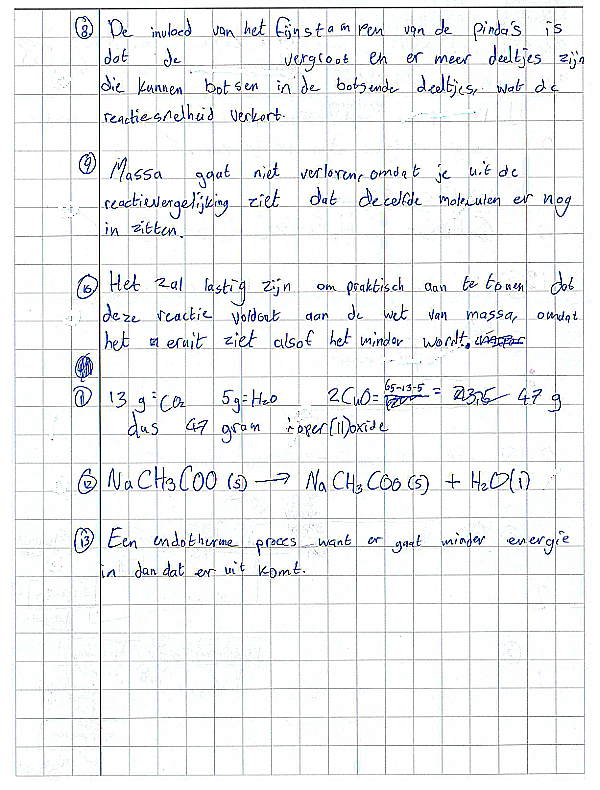 8 De invloed van het fijnstampen van de pinda's is
dat de vergroot en er meer deeltjes zijn
die kunnen botsen in de botsende deeltjes, wat de
reactiesnelheid verkort.
9 Massa gaat niet verloren, omdat je uit de
reactievergelijking ziet dat dezelfde moleculen er nog
in zitten.
10 Het zal lastig zijn om praktisch aan te tonen dat
deze reactie voldoet aan de wet van massa, omdat
het eruit ziet alsof het minder wordt.
11 13 g = CO2 5g = H2O 2CuO = 65-13-5 = 47 g
dus 47 gram koper(II)oxide
12 NaCH3COO (s) → NaCH3COO (s) + H2O(l)
13 Een endotherme proces want er gaat minder energie
in dan dat er uit komt.